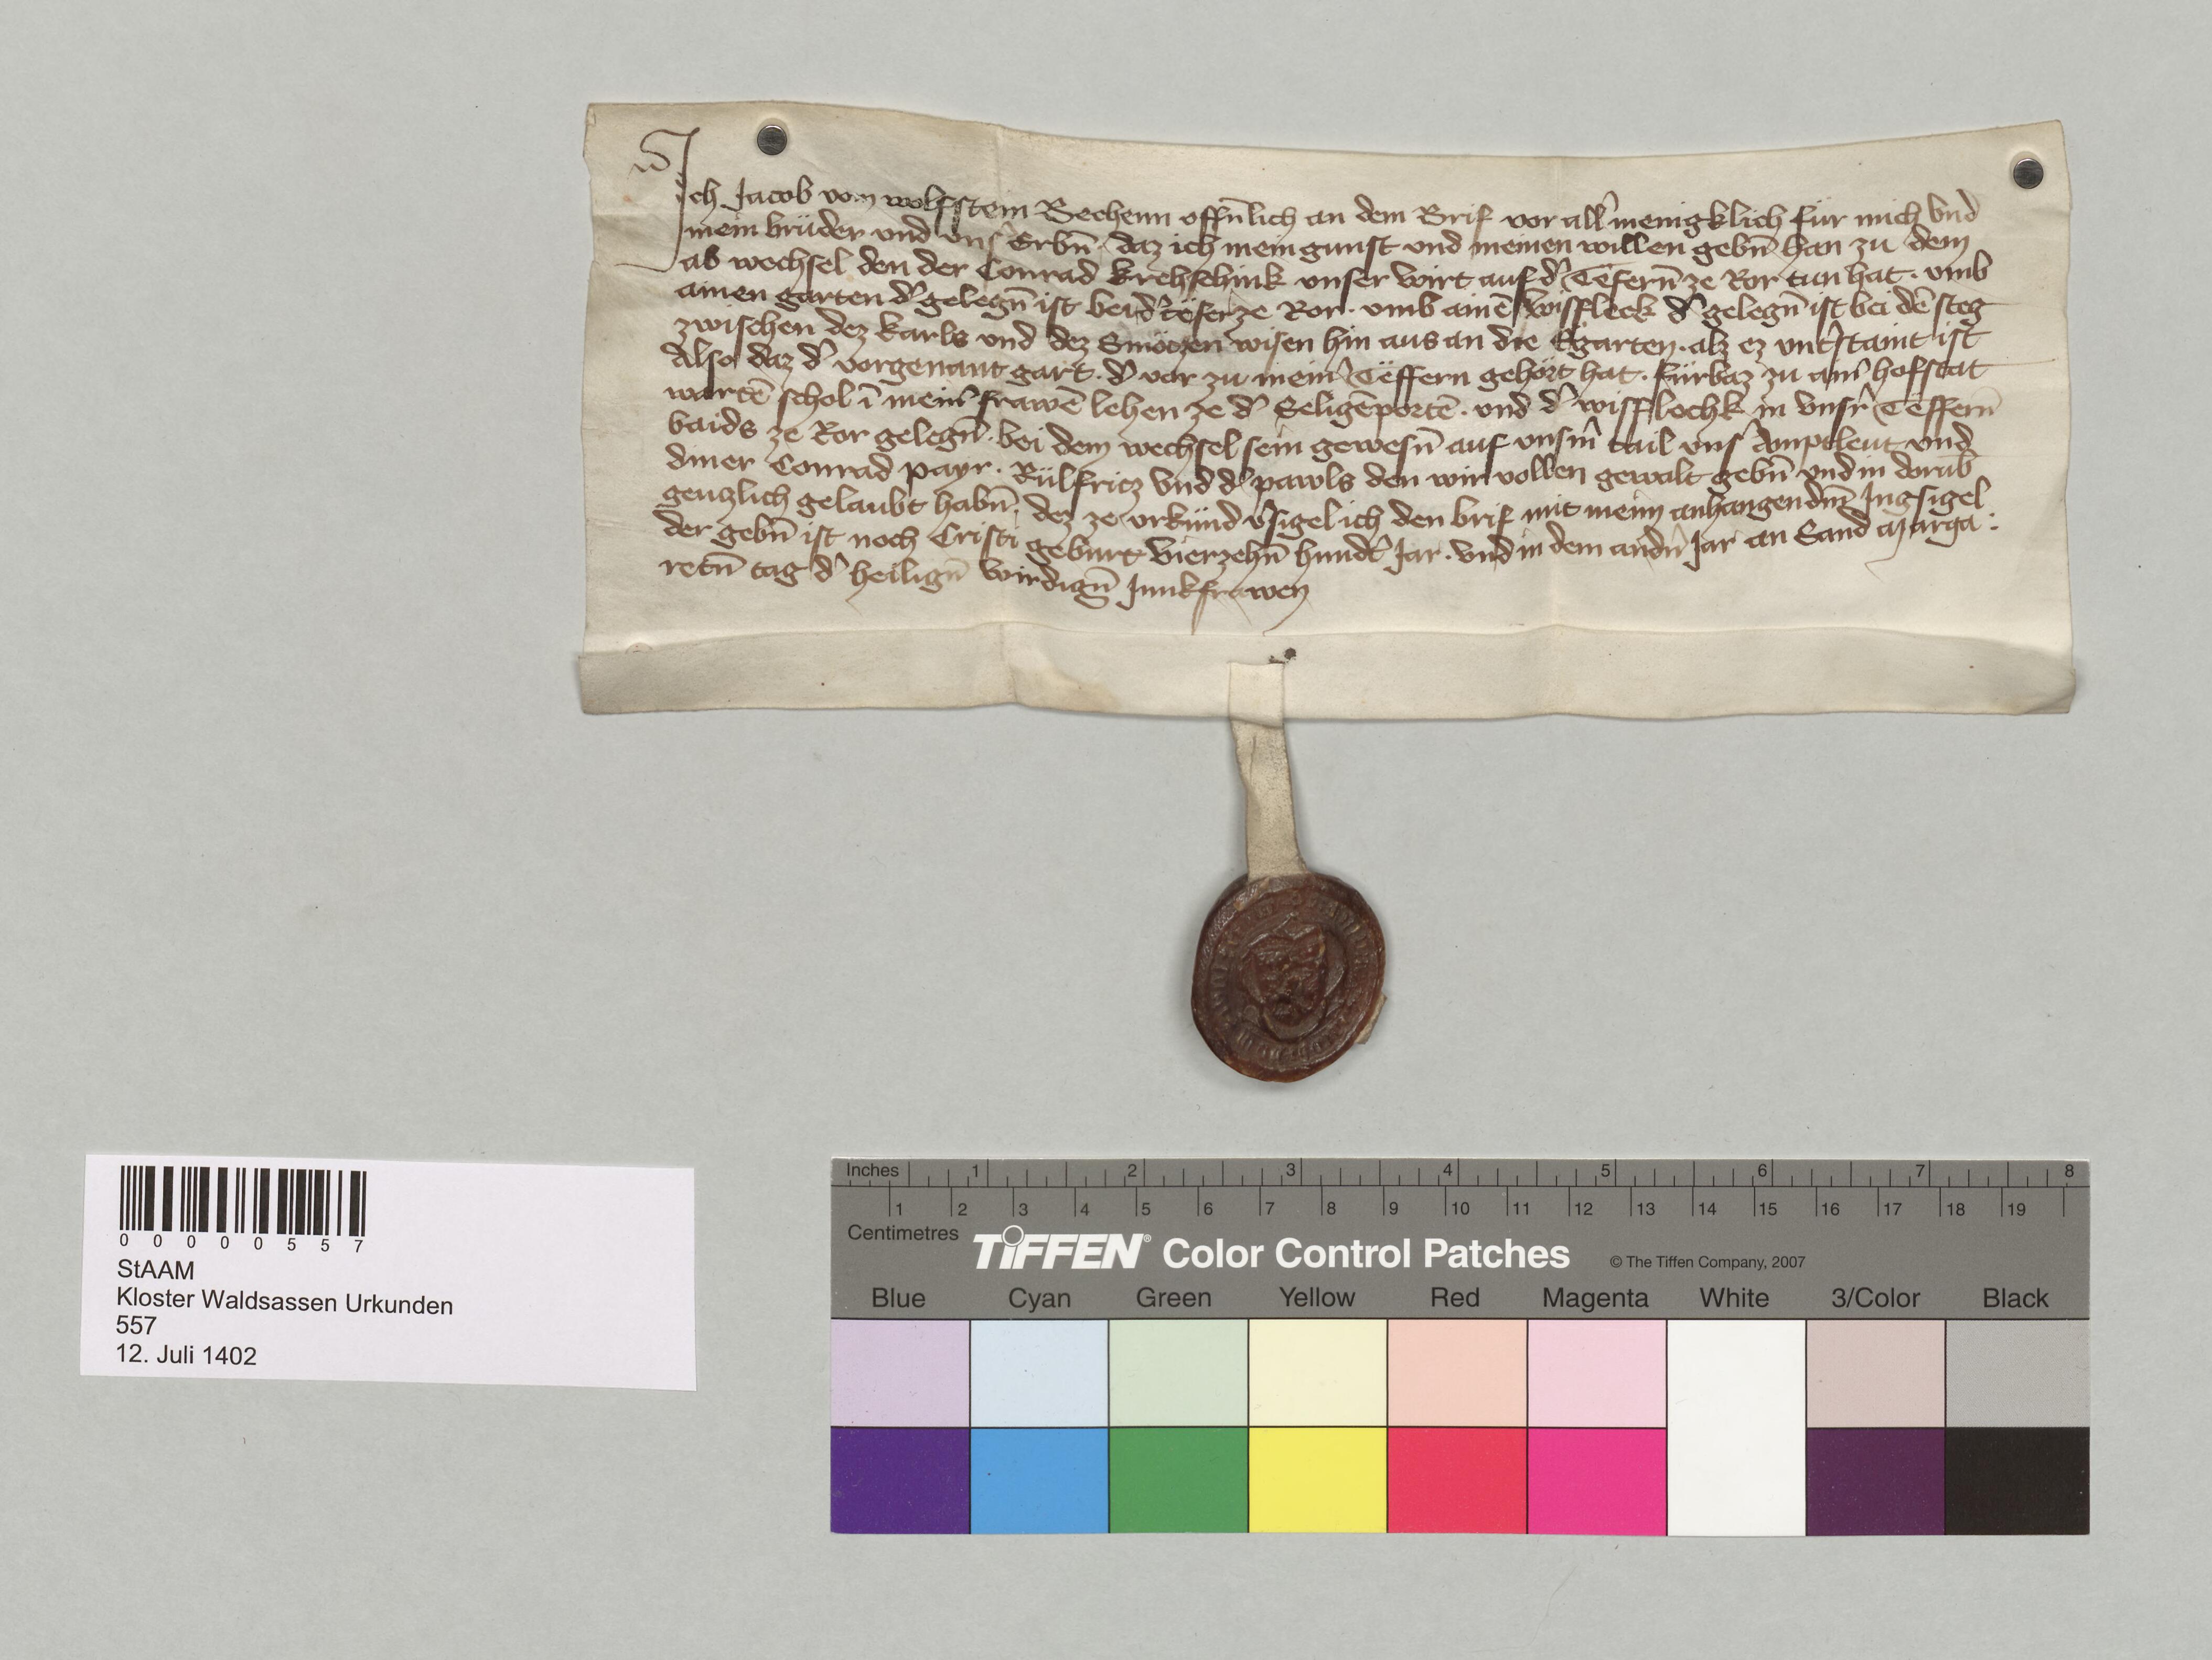 Ich Jacob von wolfstein Bechenn offn̄lich an dem Brif vor all̛ menigklich für mich vnd
mein brüder vnd vns̛ Erbn̄ daz ich mein gunst vnd meinen willen gebn̄ han zu dem
ab wechsel den der Conrad krehschink vnser wirt auf d̛ Tefern̄ ze Ror tun hat · vmb
ainen garten d̛ gelegn̄ ist bei d̛ tëfer ze Ror · vmb ainē wissfleck d̛ gelegn̄ ist bei dē steg
zwischen dez karls vnd dez Smötzen wisen hin aus an die Egarten · alz ez vnt̛staint ist
Also daz d̛ vorgenant gart · d̛ vor zu mein̛ Tëffern gehört hat · fürbaz zu ain̛ hofstat
wartē schol ī mein̛ frawē lehen ze d̛ Seligēportē · vnd d̛ wissflechk in vnsr̛ Tëffern̄
baids ze Ror gelegn̄ · bei dem wechsel sein gewesn̄ auf vnsm̄ tail vns̛ Amptleut vnd
diner Conrad payr · Rülfricz vnd d̛ pawls den wir vollen gewalt gebn̄ vnd in dorüb̛
genczlich gelaubt habn̄ · dez ze vrkünd v̛sigel ich den brif mit meim anhangendm̄ Ingsigel
der gebn̄ ist noch Cristi geburt vierzehn̄ hundt̛ Jar · vnd in dem andn̄ Jar an Sand Marga :
retn̄ tag d̛ heilign̄ wirdign̄ Junkfrawen
0 0 0 0 0 5 5 7
StAAM
Kloster Waldsassen Urkunden
557
12. Juli 1402
Inches 1 2 3 4 5 6 7 8
1 2 3 4 5 6 7 8 9 10 11 12 13 14 15 16 17 18 19
Centimetres
TIFFEN® Color Control Patches © The Tiffen Company, 2007
Blue Cyan Green Yellow Red Magenta White 3/Color Black